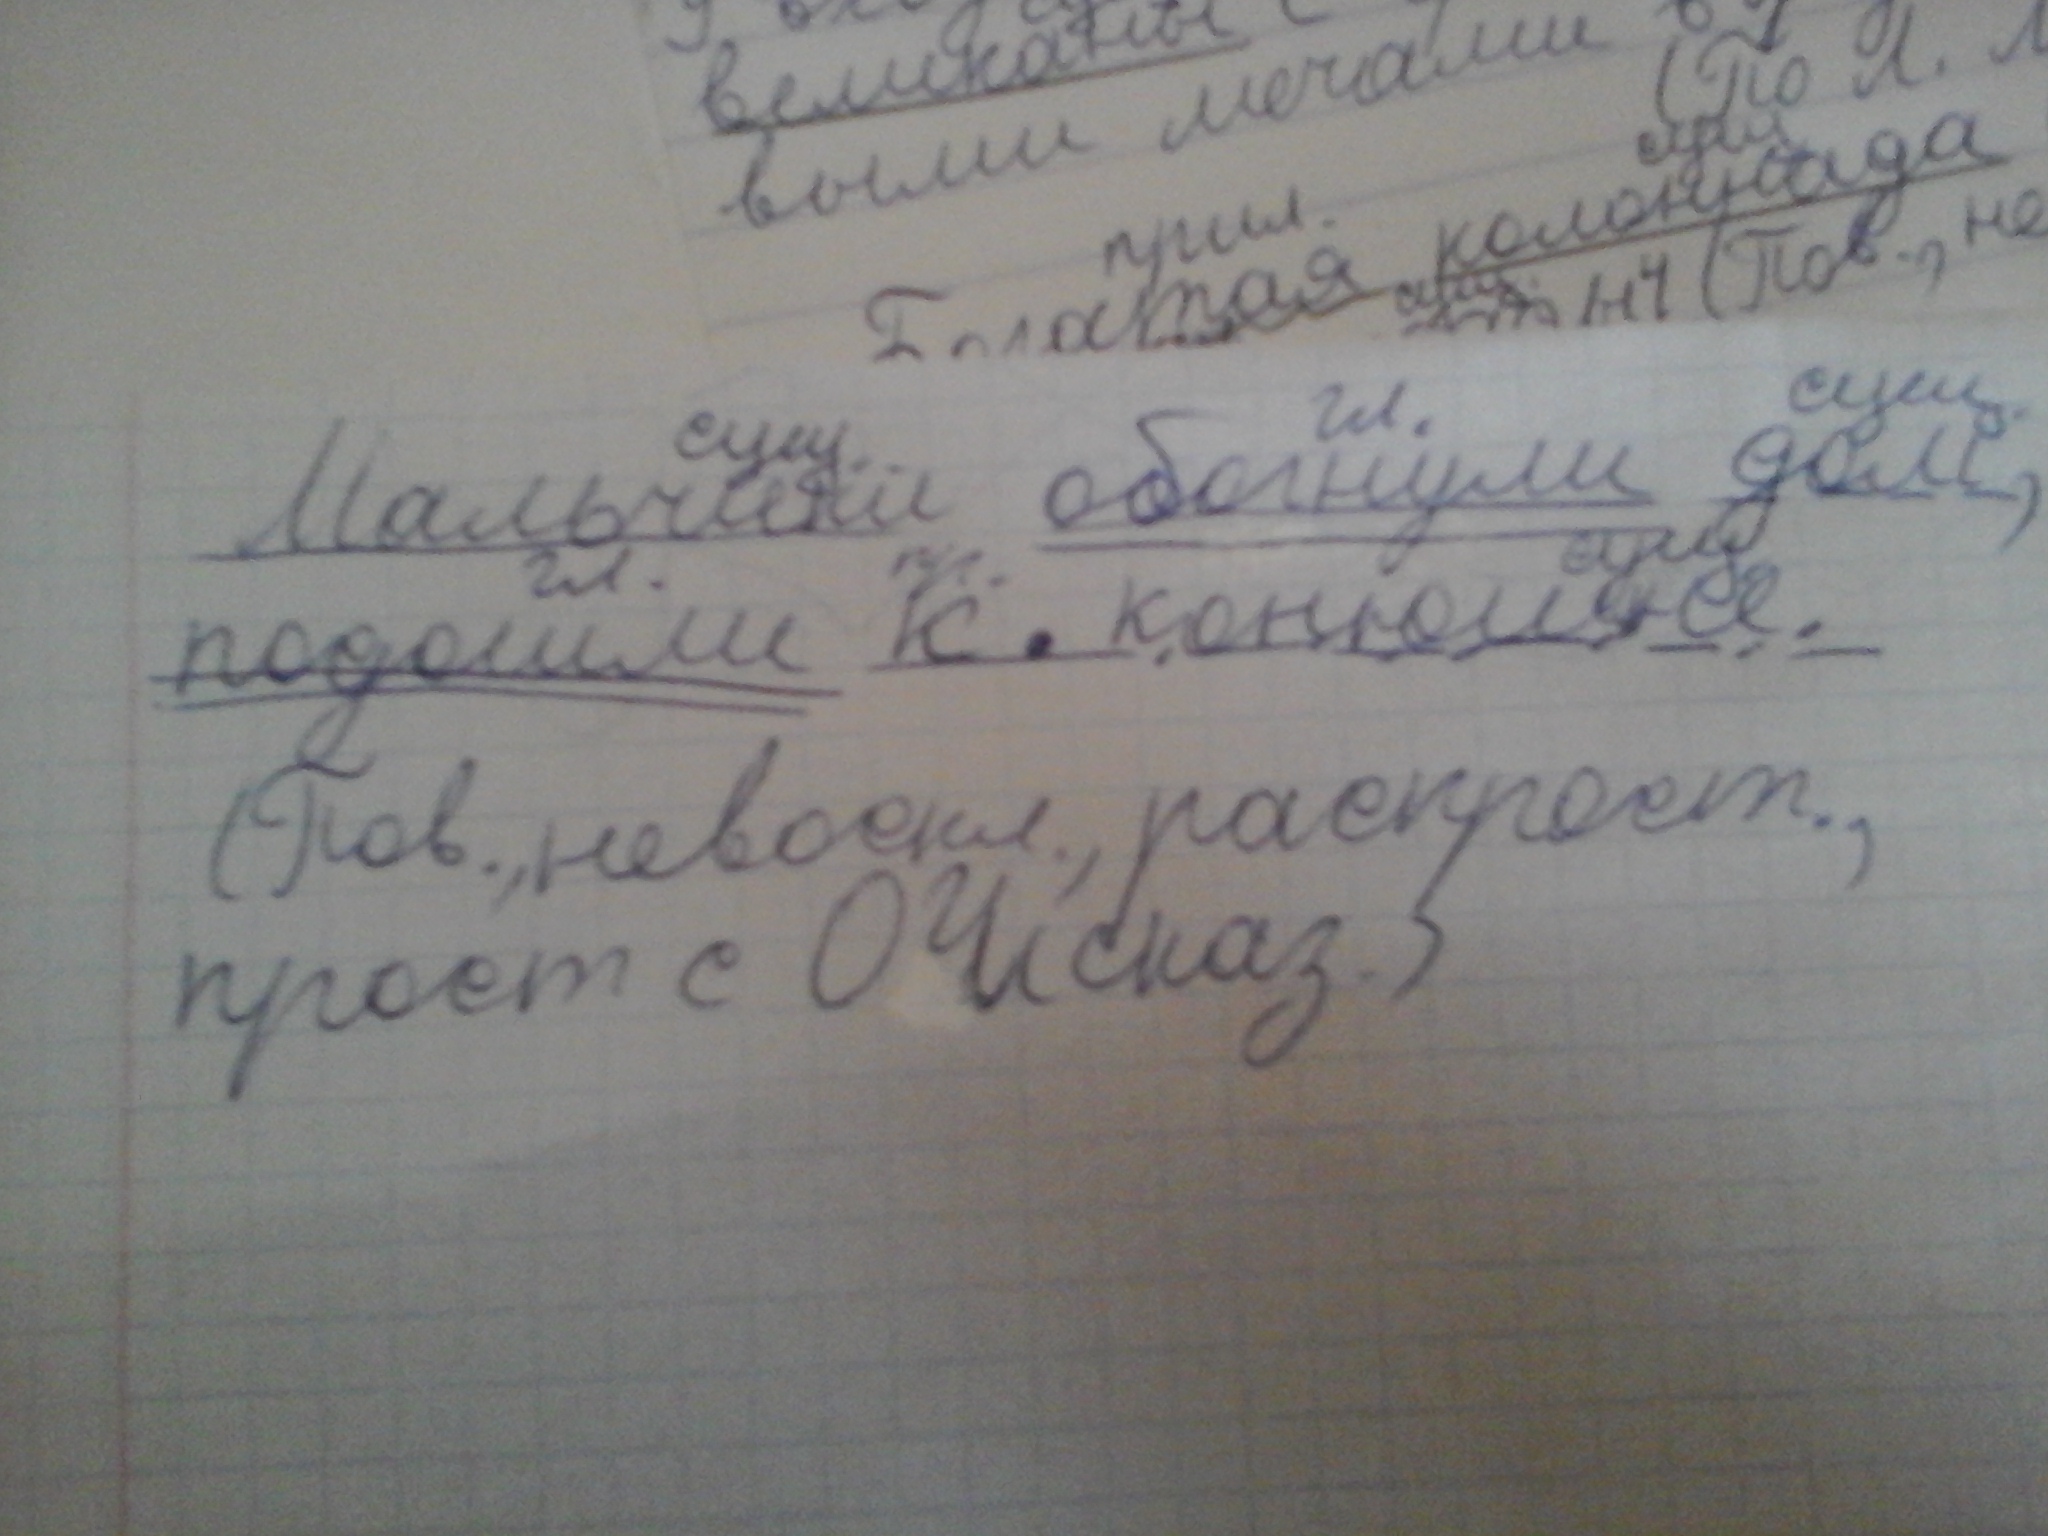 великаны с
выми мечами в
(По Л.
прил. сущ.
колоннада
сущ. нч (Пов., не
сущ. гл. сущ.
Мальчики обогнули дом,
гл. пр. сущ.
подошли к конюшне.
(Пов., невоскл., распрост.,
прост с ОЧ сказ.)